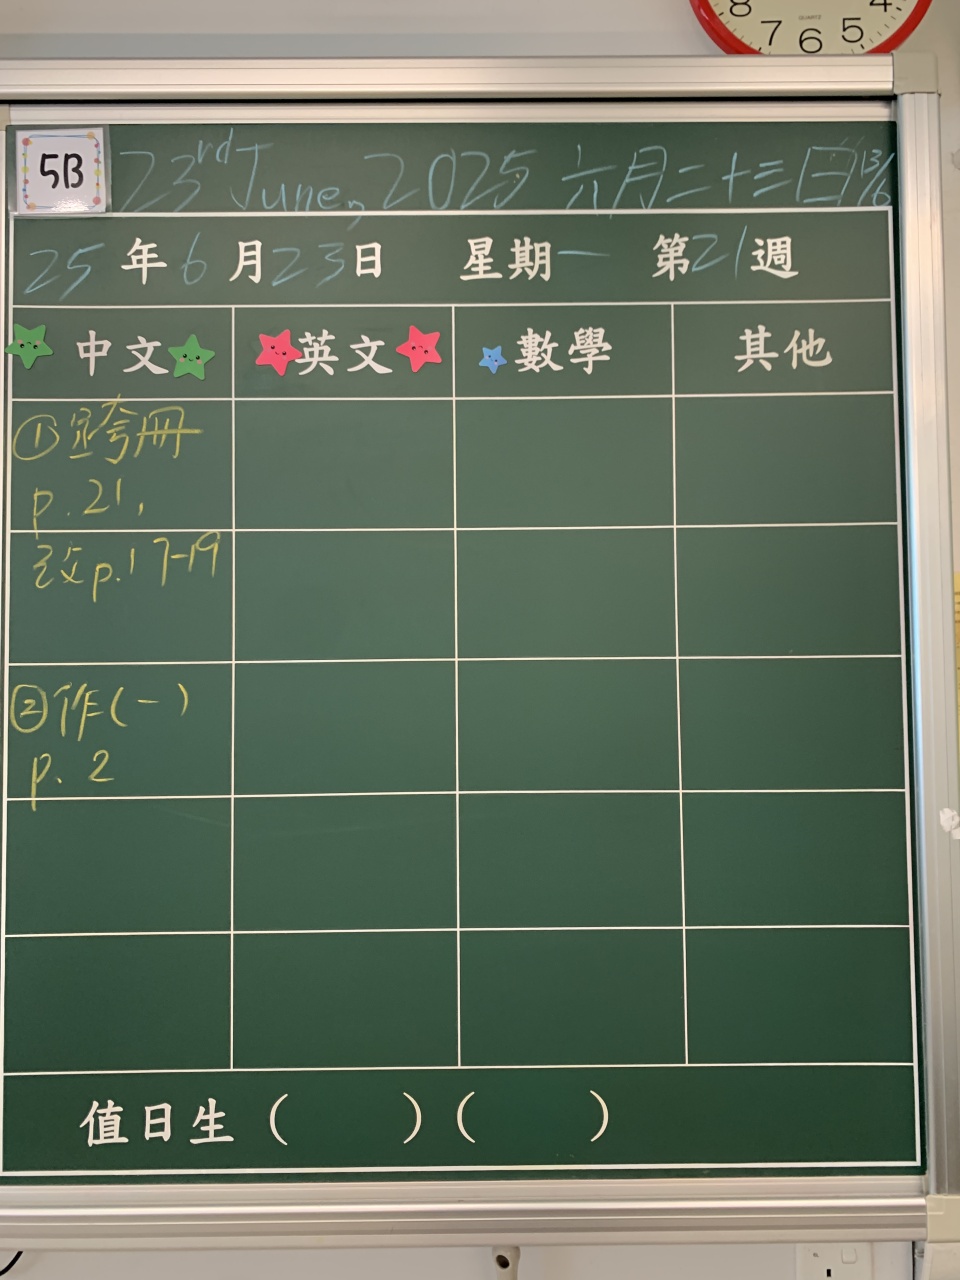 8 7 6 5 4
QUARTZ
5B
23rd June, 2025 六月二十三日
25年6月23日 星期一 第21週
中文 英文 數學 其他
①
p.21,
改p.17-19
②作(一)
p.2
值日生( )( )